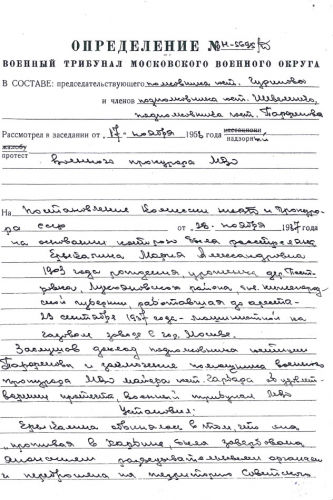 ОПРЕДЕЛЕНИЕ №
ВОЕННЫЙ ТРИБУНАЛ МОСКОВСКОГО ВОЕННОГО ОКРУГА
В СОСТАВЕ: председательствующего полковника юст.
и членов подполковника юст.
подполковника юст.
Рассмотрел в заседании от „17" ноября 195 г. кассацион
надзорный
жалобу
протест
военного прокурора МВО
На постановление Комиссии НКВД и Прокуро
ра СССР от „26" ноября 1937
на основании которого была расстреляна
Мария Александровна
1903 года рождения, уроженка дер.
района
ской губернии, работавшая до ареста
23 сентября 1937 года - машинисткой на
газовом заводе в гор. Москве.
Заслушав доклад подполковника юстиции
и заключение помощника военного
прокурора МВО майора юст. об удовлет-
ворении протеста военный трибунал МВО
Установил:
обвинялась в том, что она
„проживая в Харбине, была завербована
японскими разведывательными органами
и переброшена на территорию Советского